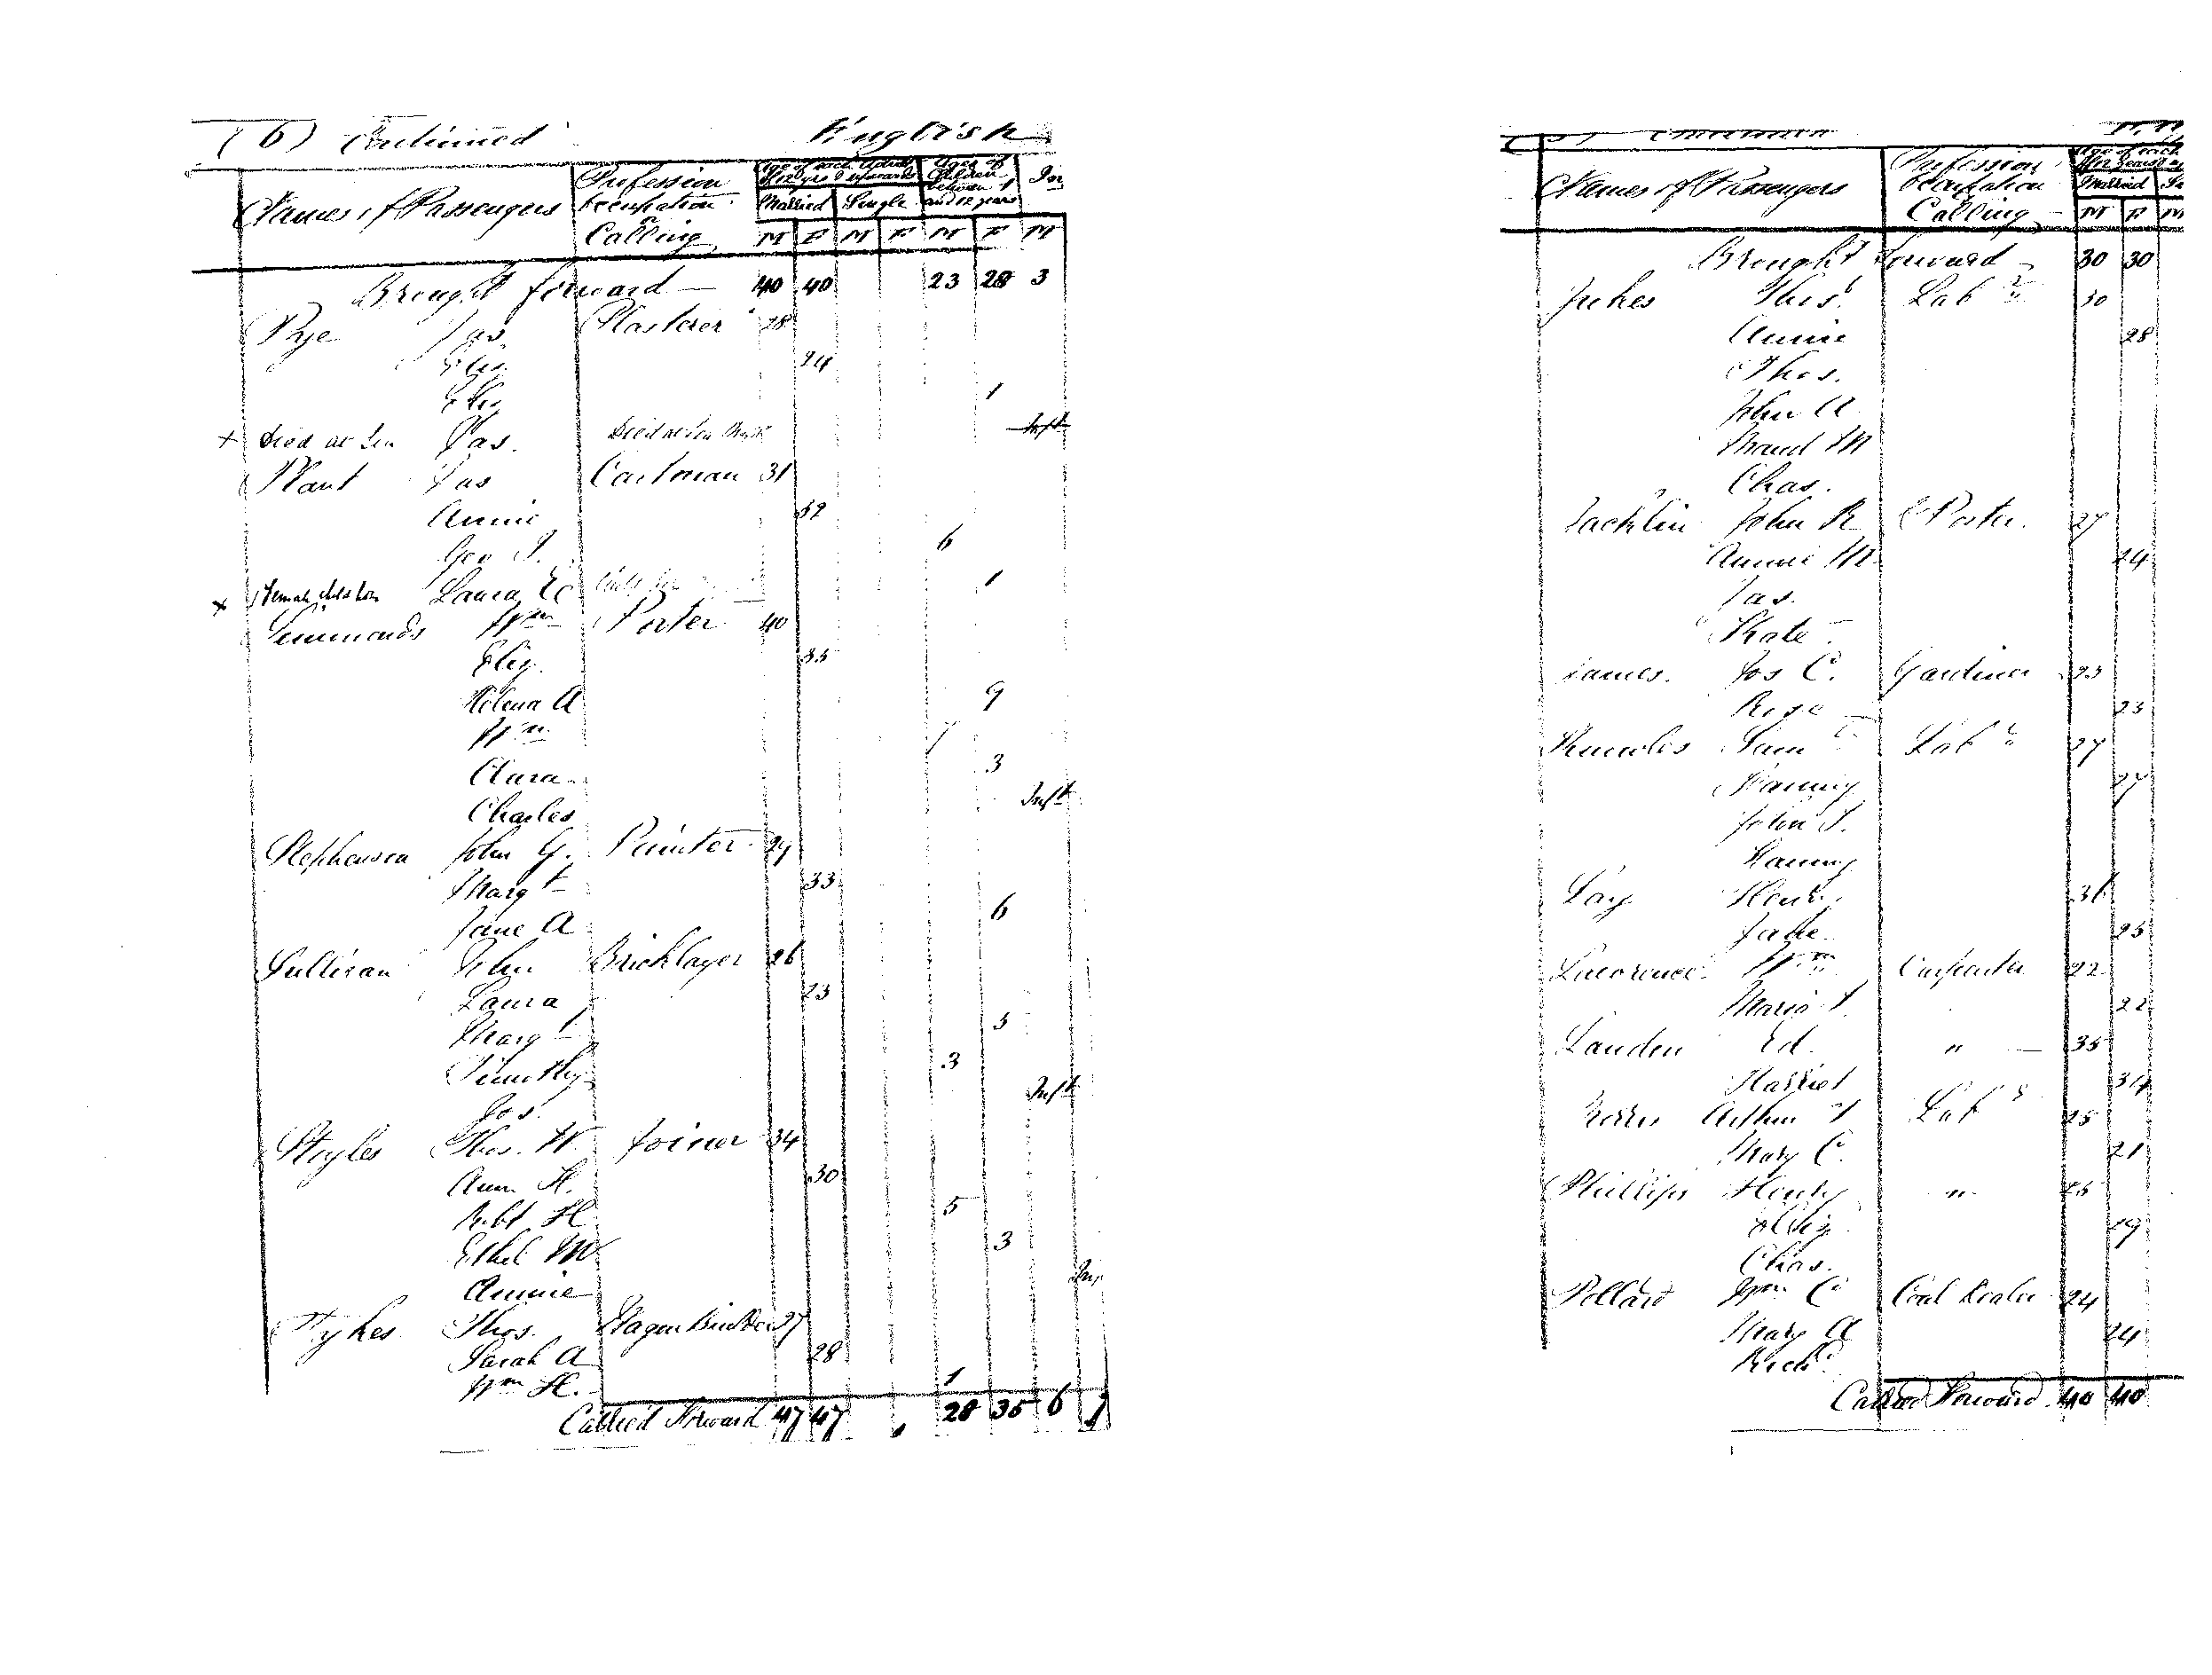 (6) Continued English
Names of Passengers Profession Occupation or Calling Age of each Adult of 12 yrs & upwards Ages of Children between 1 and 12 years In
Married Single
M F M F M F M
Brought forward — 40 40 23 28 3
Pye Jas. Plasterer 28
Eliz 24
Eliz 1
+ Died at Sea Jas. Died at Sea Inft
Plant Jas Cartman 31
Annie 32
Geo J. 6
x Female child born Laura E 1
Simmonds Wm Porter 40
Eliz. 35
Helena A 9
Wm 7
Clara 3
Charles Inft
Stephenson John G. Painter 29
Margt 33
Jane A 6
Sullivan John Bricklayer 26
Laura 23
Margt 5
Timothy 3
Jos. Inft
Styles Thos. W. Joiner 34
Ann H. 30
Robt H 5
Ethel M 3
Annie Inf
Tykes Thos. Wagon Builder 27
Sarah A 28
Wm H. 1
Carried Forward 47 47 28 35 6 1
(5) Continued
Names of Passengers Profession Occupation Calling Age of each
Married
M F M
Brought forward 30 30
Jukes Thos. Labr 30
Annie 28
Thos.
John A
Maud M
Chas.
Jacklin John R Porter. 27
Annie M. 24
Jas.
Kate
James. Jos C. Gardiner 23
Rose 23
Knowles Saml Labr 27
Fanny 27
John J.
Fanny
Lay Henry 36
Jane 25
Lawrence Wm Carpenter 22
Maria 22
Landen Ed. " — 35
Harriet 34
Arthur Labr 25
Mary C. 21
Phillips Henry " 25
Eliz 19
Chas.
Pollard Wm C Coal Dealer 24
Mary A 24
Richd
Carried Forward 40 40